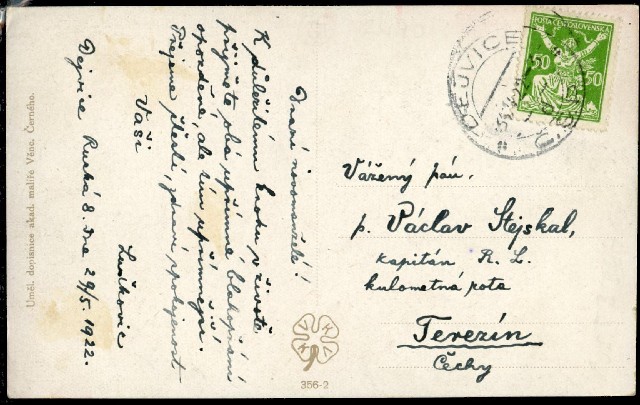 Drazí novomanželé!
K důležitému kroku v životě
přijměte obá upřímné blahopřání
opozděné, ale tím upřímnější.
Přejeme štěstí, zdraví, spokojenost
Vaši
Luňkovic
Dejvice Ruská 8. dne 29/5. 1922.
Uměl. dopisnice akad. malíře Věnc. Černého.
DEJVICE
POŠTA ČESKOSLOVENSKÁ
50 50
Vážený pán,
p. Václav Stejskal,
kapitán R. L.
kulometná rota
Terezín
Čechy
V K K V
356-2